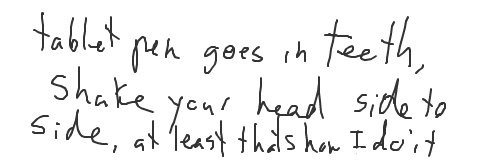 tablet pen goes in teeth,
Shake your head side to
side, at least that's how I do it